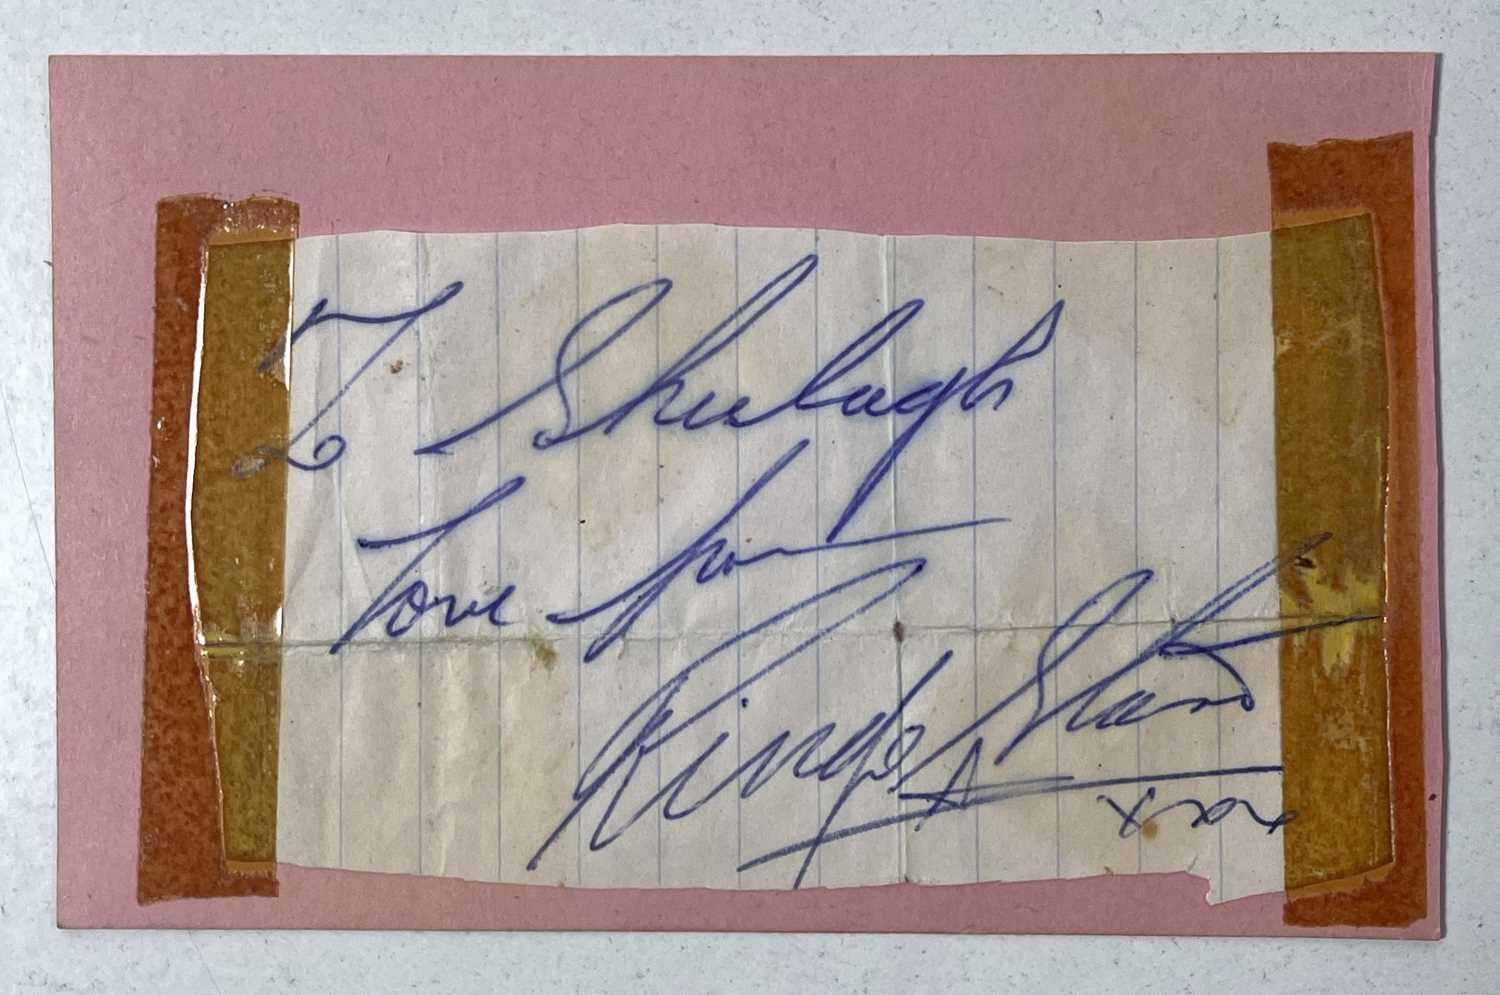 To Sheelagh
love from
Ringo Starr
xxx